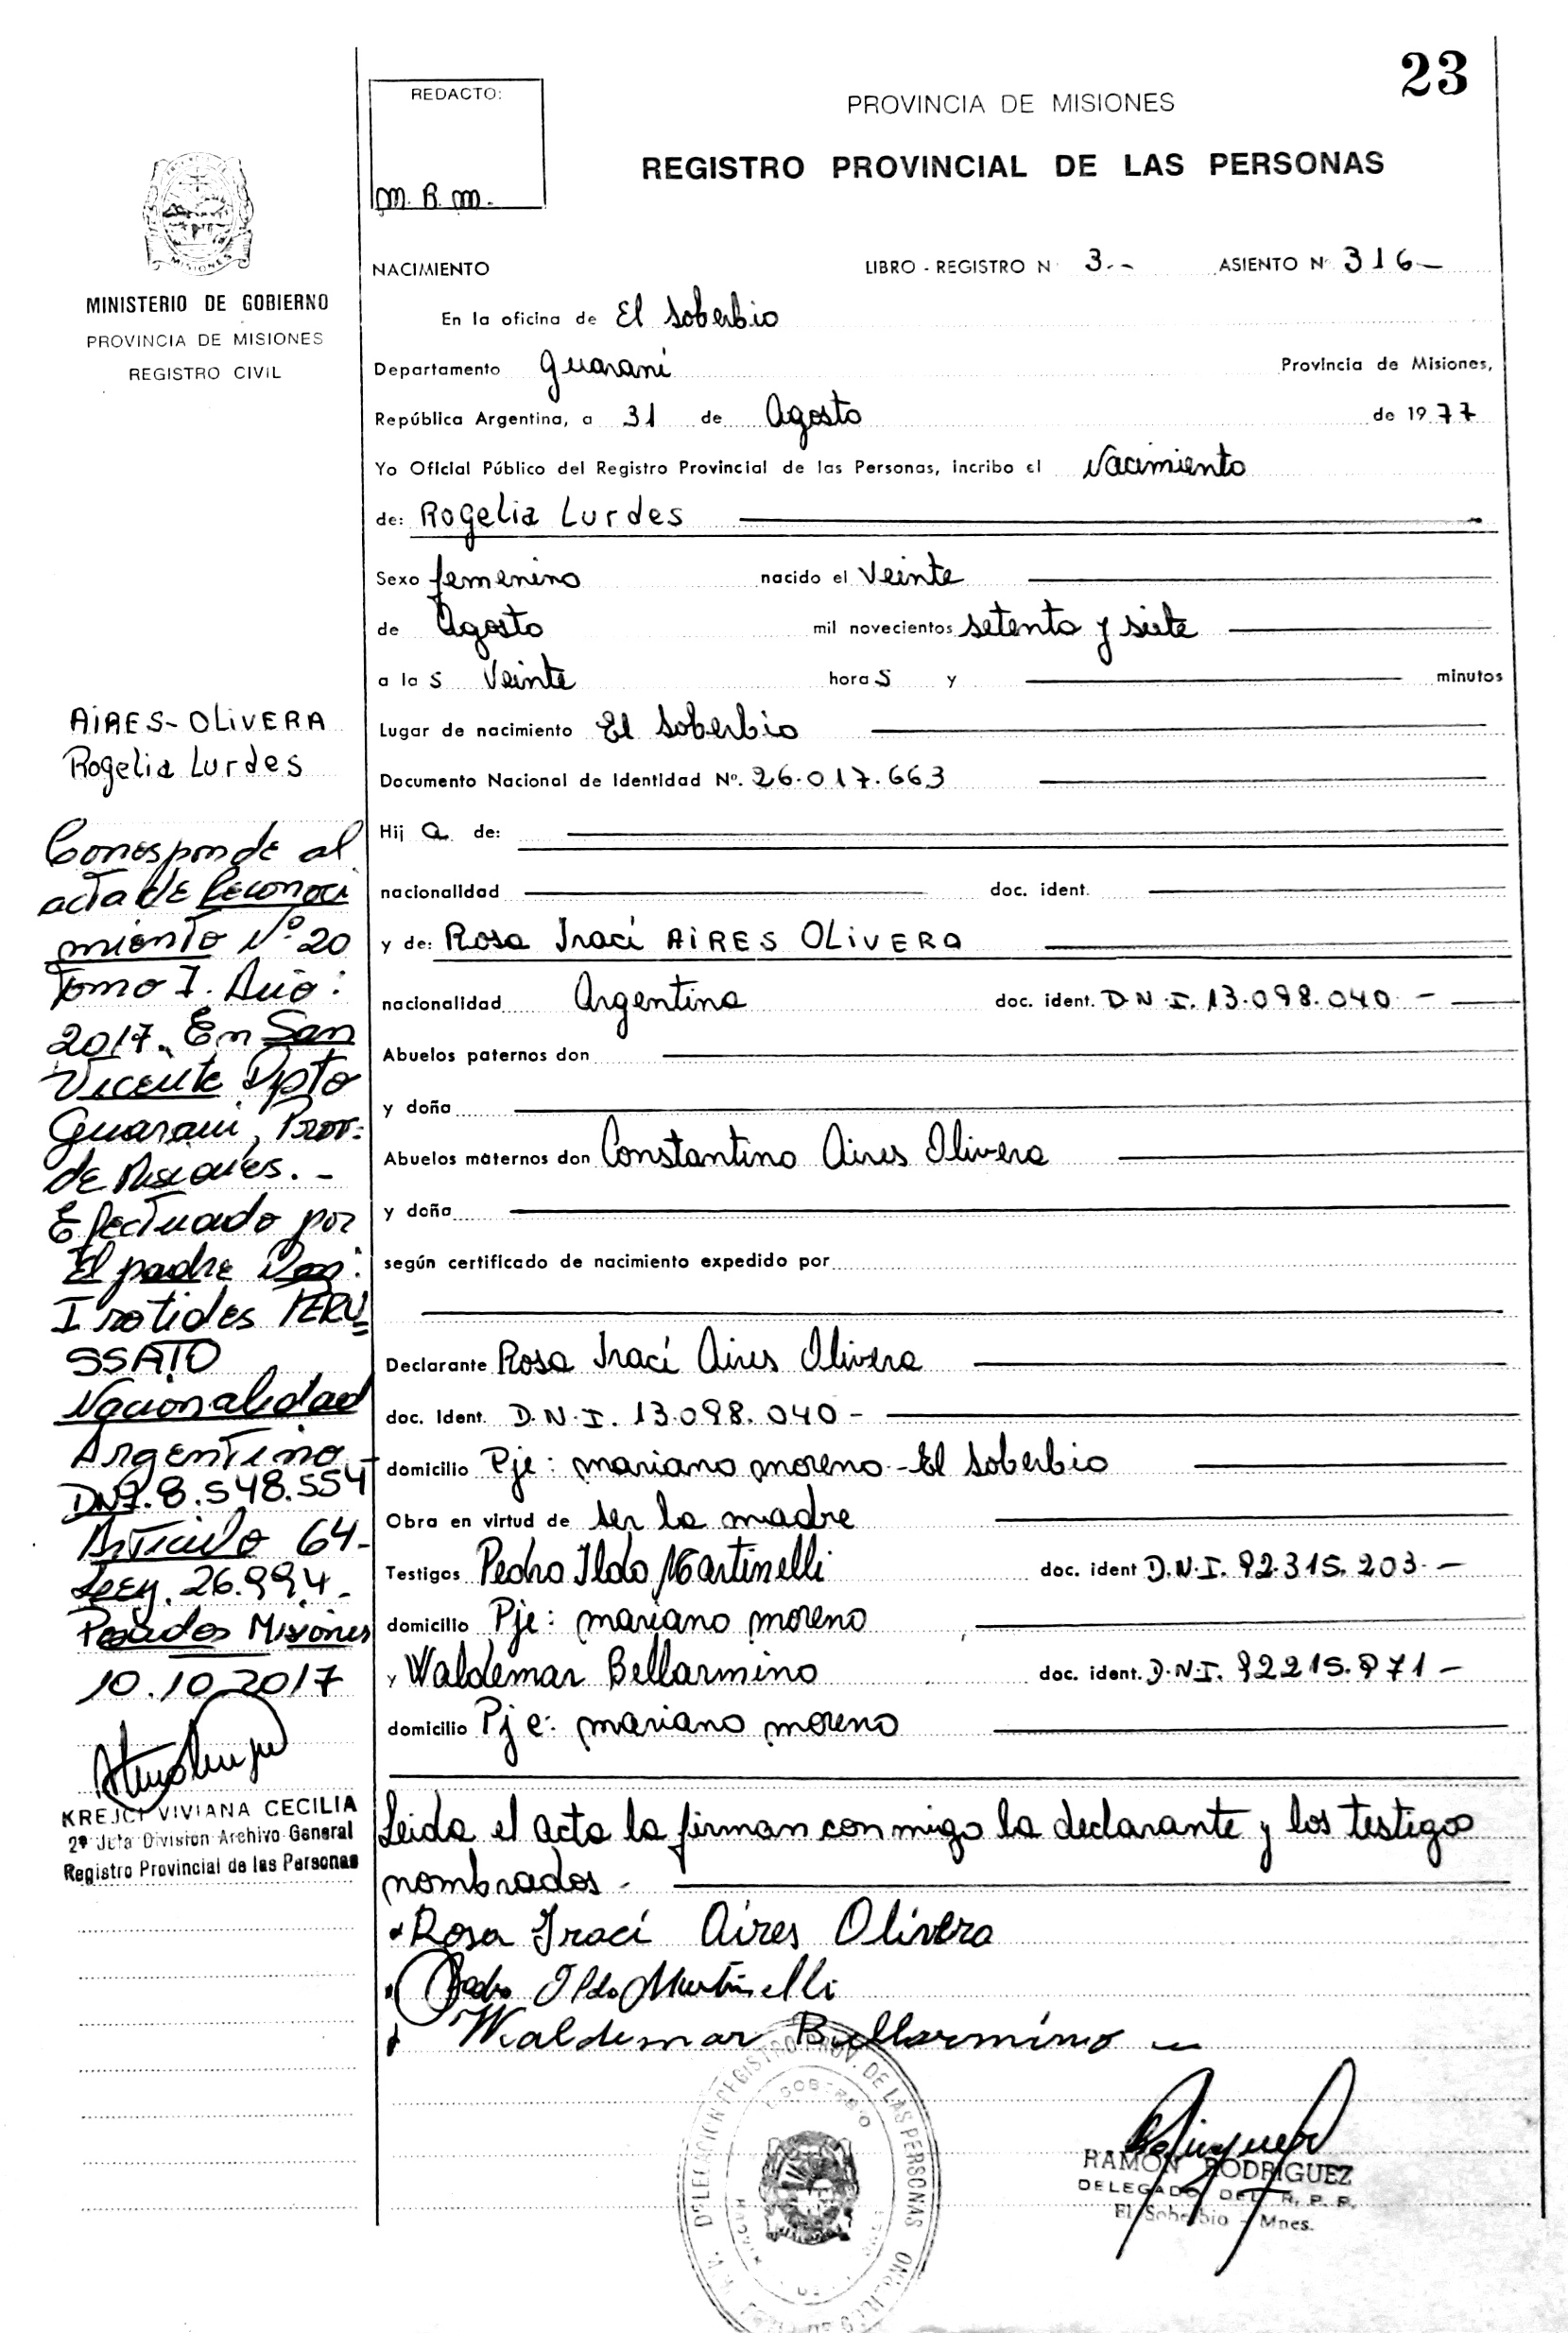 23
REDACTO:
m. R. m.
PROVINCIA DE MISIONES
REGISTRO PROVINCIAL DE LAS PERSONAS
MISIONES
MINISTERIO DE GOBIERNO
PROVINCIA DE MISIONES
REGISTRO CIVIL
NACIMIENTO LIBRO - REGISTRO N° 3.- ASIENTO N° 316-
En la oficina de El Soberbio
Departamento Guaraní Provincia de Misiones,
República Argentina, a 31 de Agosto de 1977
Yo Oficial Público del Registro Provincial de las Personas, incribo el Nacimiento
de: Rogelia Lurdes
Sexo femenino nacido el Veinte
de Agosto mil novecientos setenta y siete
a las Veinte horas y minutos
Lugar de nacimiento El Soberbio
Documento Nacional de Identidad Nº. 26.017.663
Hija de:
nacionalidad doc. ident.
y de: Rosa Iraci AIRES OLIVERA
nacionalidad Argentina doc. ident. D.N.I. 13.098.040.-
Abuelos paternos don
y doña
Abuelos maternos don Constantino Aires Olivera
y doña
según certificado de nacimiento expedido por
Declarante Rosa Iraci Aires Olivera
doc. Ident. D.N.I. 13.098.040-
domicilio Pje: mariano moreno - El Soberbio
Obra en virtud de ser la madre
Testigos Pedro Ildo Martinelli doc. ident D.N.I. 92.315.203.-
domicilio Pje: mariano moreno
y Waldemar Bellarmino doc. ident. D.N.I. 92215.971-
domicilio Pje: mariano moreno
Leida el acta la firman conmigo la declarante y los testigos
nombrados.
Rosa Iraci Aires Olivera
Pedro Ildo Martinelli
Waldemar Bellarmino
AIRES-OLIVERA
Rogelia Lurdes
Corresponde al
acta de Reconoci
miento Nº 20
Tomo I. Año:
2017. En San
Vicente Dpto
Guarani, Prov.
de Misiones.-
Efectuado por
El padre Don:
Irotides PERU
SSATO
Nacionalidad
Argentino
DNI. 8.548.554
Articulo 64-
Leey. 26.994-
Posadas Misiones
10.10.2017
KREJCI VIVIANA CECILIA
2ª Jefa Division Archivo General
Registro Provincial de las Personas
DELEGACION REGISTRO PROV. DE LAS PERSONAS
RAMON RODRIGUEZ
DELEGADO DEL R. P. P.
El Soberbio - Mnes.